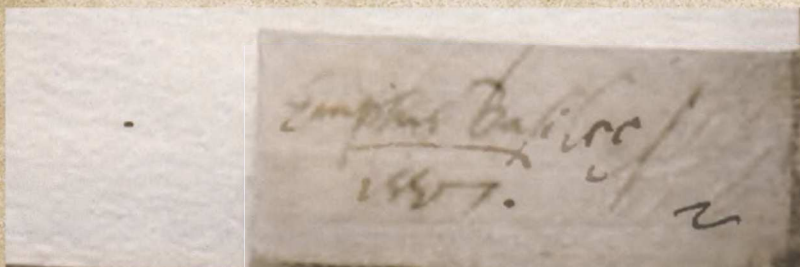 Emptus Basileę
1557.